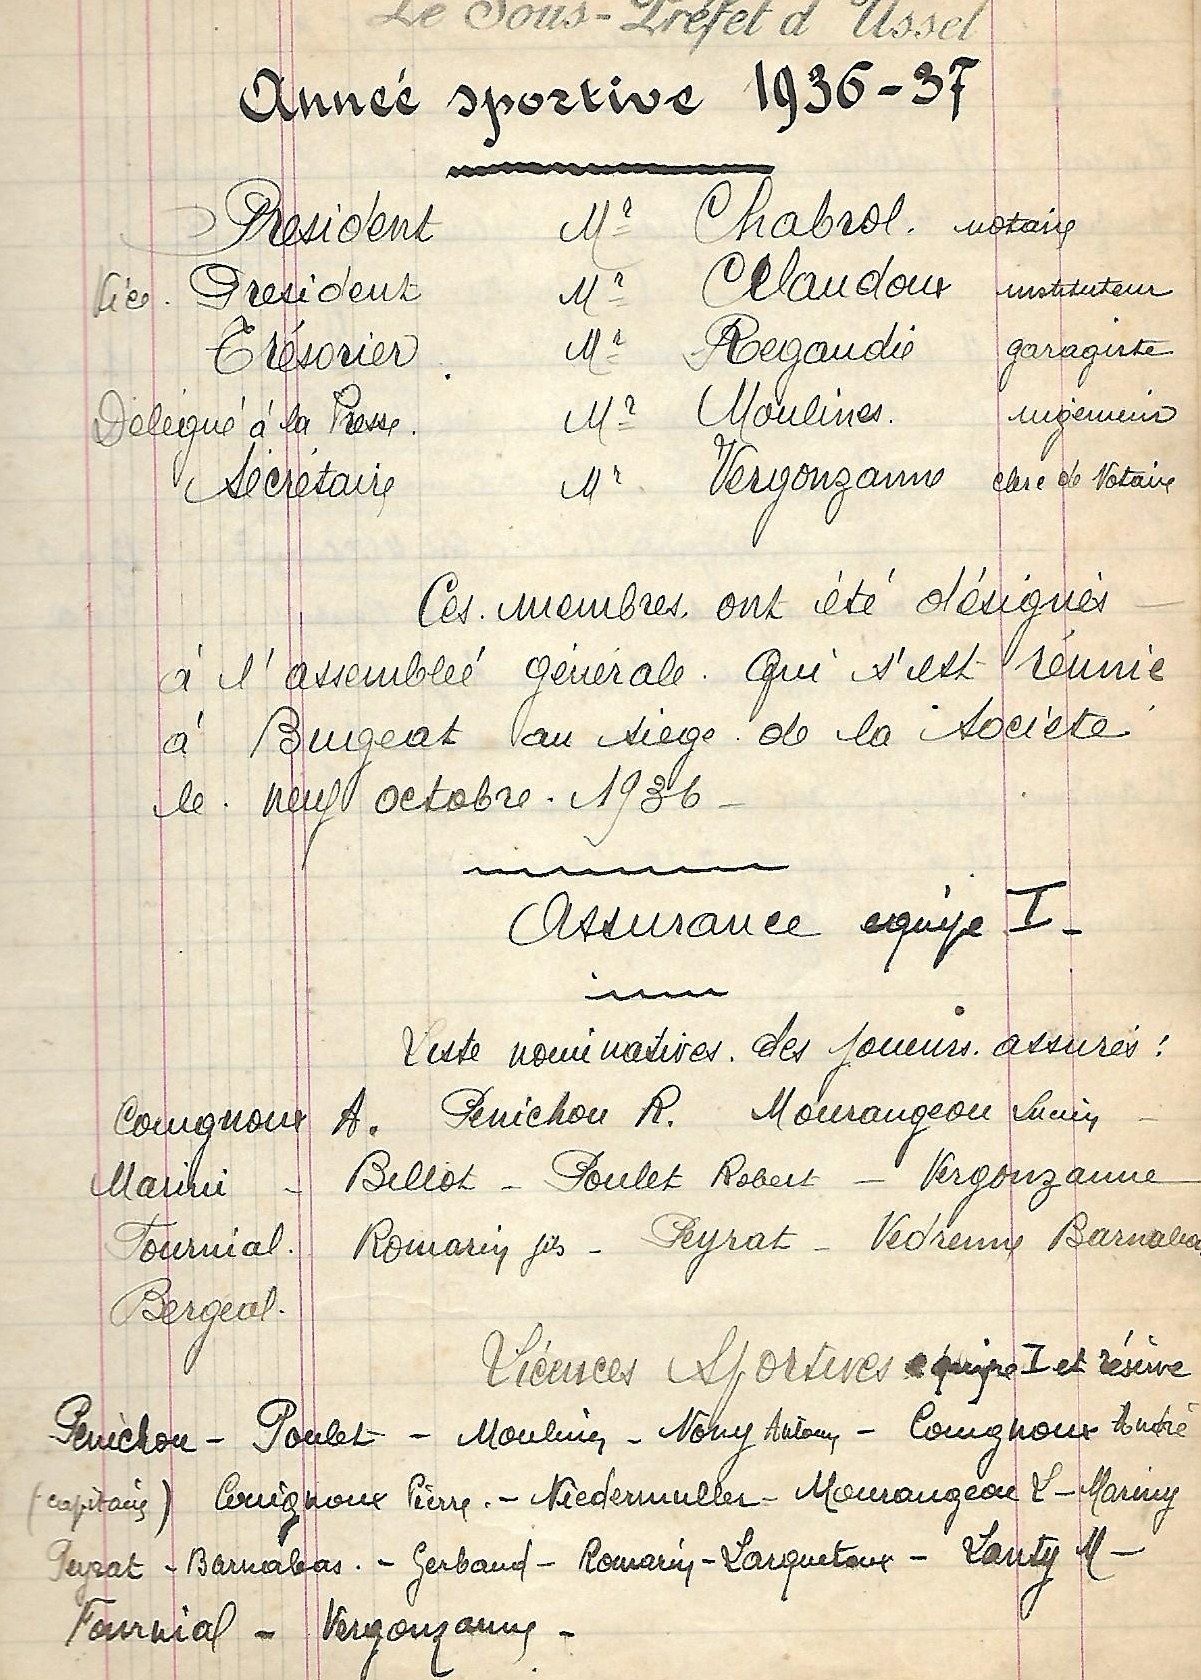 Le Sous-Préfet d'Ussel
Année sportive 1936-37
Président Mr Chabrol. notaire
Vice. President Mr Claudoux instituteur
Trésorier Mr Regaudie garagiste
Délégué à la Presse. Mr Moulines. ingenieur
Sécrétaire Mr Vergonzanne clerc de Notaire
Ces. membres. ont été désignés
à l'assembleé générale. qui s'est réunie
à Bugeat au siège. de la Société
le. neuf octobre. 1936 -
Assurance equipe I -
Liste nominatives. des joueurs. assurés :
Couignoux A. Penichou R. Mourangeou Lucien -
Marini - Billot - Poulet Robert - Vergonzanne
Fournial. Romarin fils - Peyrat - Vedrenne Barnabas
Bergeal.
Licences Sportives equipe I et réserve
Penichou - Poulet - Moulines - Nony Antony - Couignoux André
(capitaine) Couignoux Pierre. - Niedermuller - Mourangeou L - Mariny
Peyrat - Barnabas. - Gerbaud - Romarin - Larquetoux - Lanty M -
Fournial - Vergonzanne -